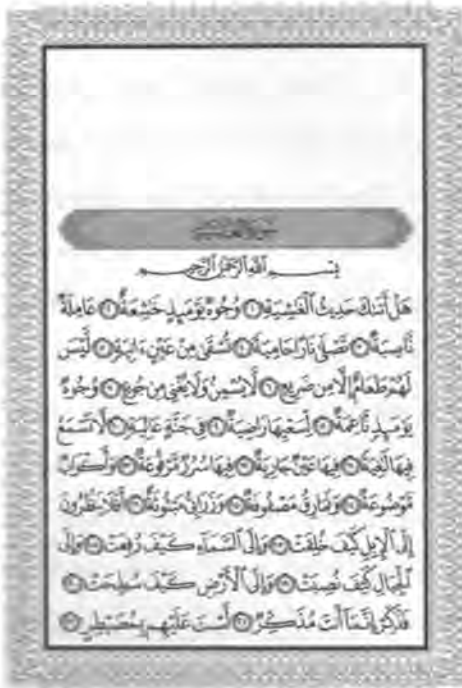 سورة الغاشية
بِسْمِ اللَّهِ الرَّحْمَٰنِ الرَّحِيمِ
هَلْ أَتَىٰكَ حَدِيثُ الْغَٰشِيَةِ ١ وُجُوهٌ يَوْمَئِذٍ خَٰشِعَةٌ ٢ عَامِلَةٌ
نَّاصِبَةٌ ٣ تَصْلَىٰ نَارًا حَامِيَةً ٤ تُسْقَىٰ مِنْ عَيْنٍ ءَانِيَةٍ ٥ لَّيْسَ
لَهُمْ طَعَامٌ إِلَّا مِن ضَرِيعٍ ٦ لَّا يُسْمِنُ وَلَا يُغْنِي مِن جُوعٍ ٧ وُجُوهٌ
يَوْمَئِذٍ نَّاعِمَةٌ ٨ لِّسَعْيِهَا رَاضِيَةٌ ٩ فِي جَنَّةٍ عَالِيَةٍ ١٠ لَّا تَسْمَعُ
فِيهَا لَٰغِيَةً ١١ فِيهَا عَيْنٌ جَارِيَةٌ ١٢ فِيهَا سُرُرٌ مَّرْفُوعَةٌ ١٣ وَأَكْوَابٌ
مَّوْضُوعَةٌ ١٤ وَنَمَارِقُ مَصْفُوفَةٌ ١٥ وَزَرَابِيُّ مَبْثُوثَةٌ ١٦ أَفَلَا يَنظُرُونَ
إِلَى الْإِبِلِ كَيْفَ خُلِقَتْ ١٧ وَإِلَى السَّمَاءِ كَيْفَ رُفِعَتْ ١٨ وَإِلَى
الْجِبَالِ كَيْفَ نُصِبَتْ ١٩ وَإِلَى الْأَرْضِ كَيْفَ سُطِحَتْ ٢٠
فَذَكِّرْ إِنَّمَا أَنتَ مُذَكِّرٌ ٢١ لَّسْتَ عَلَيْهِم بِمُصَيْطِرٍ ٢٢